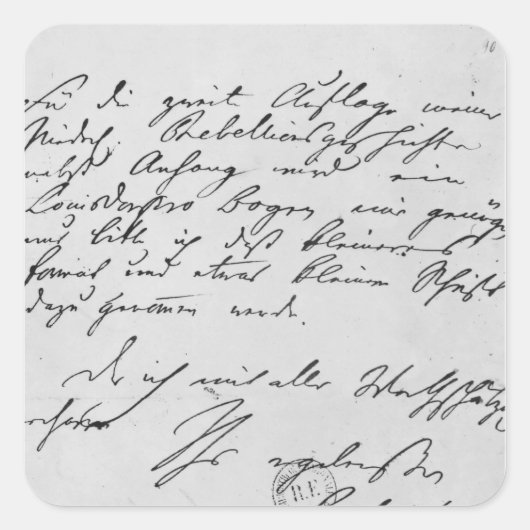 Für die zweite Auflage meiner
Niederl. Rebellionsgeschichte
nebst Anhang wird ein
Louisdor pro Bogen mir genügen
nur bitte ich daß kleineres
Format und etwas kleinere Schrift
dazu genommen werde.
Der ich mit aller Werthschätzung
verharre Ihr ergebenster
R.F.